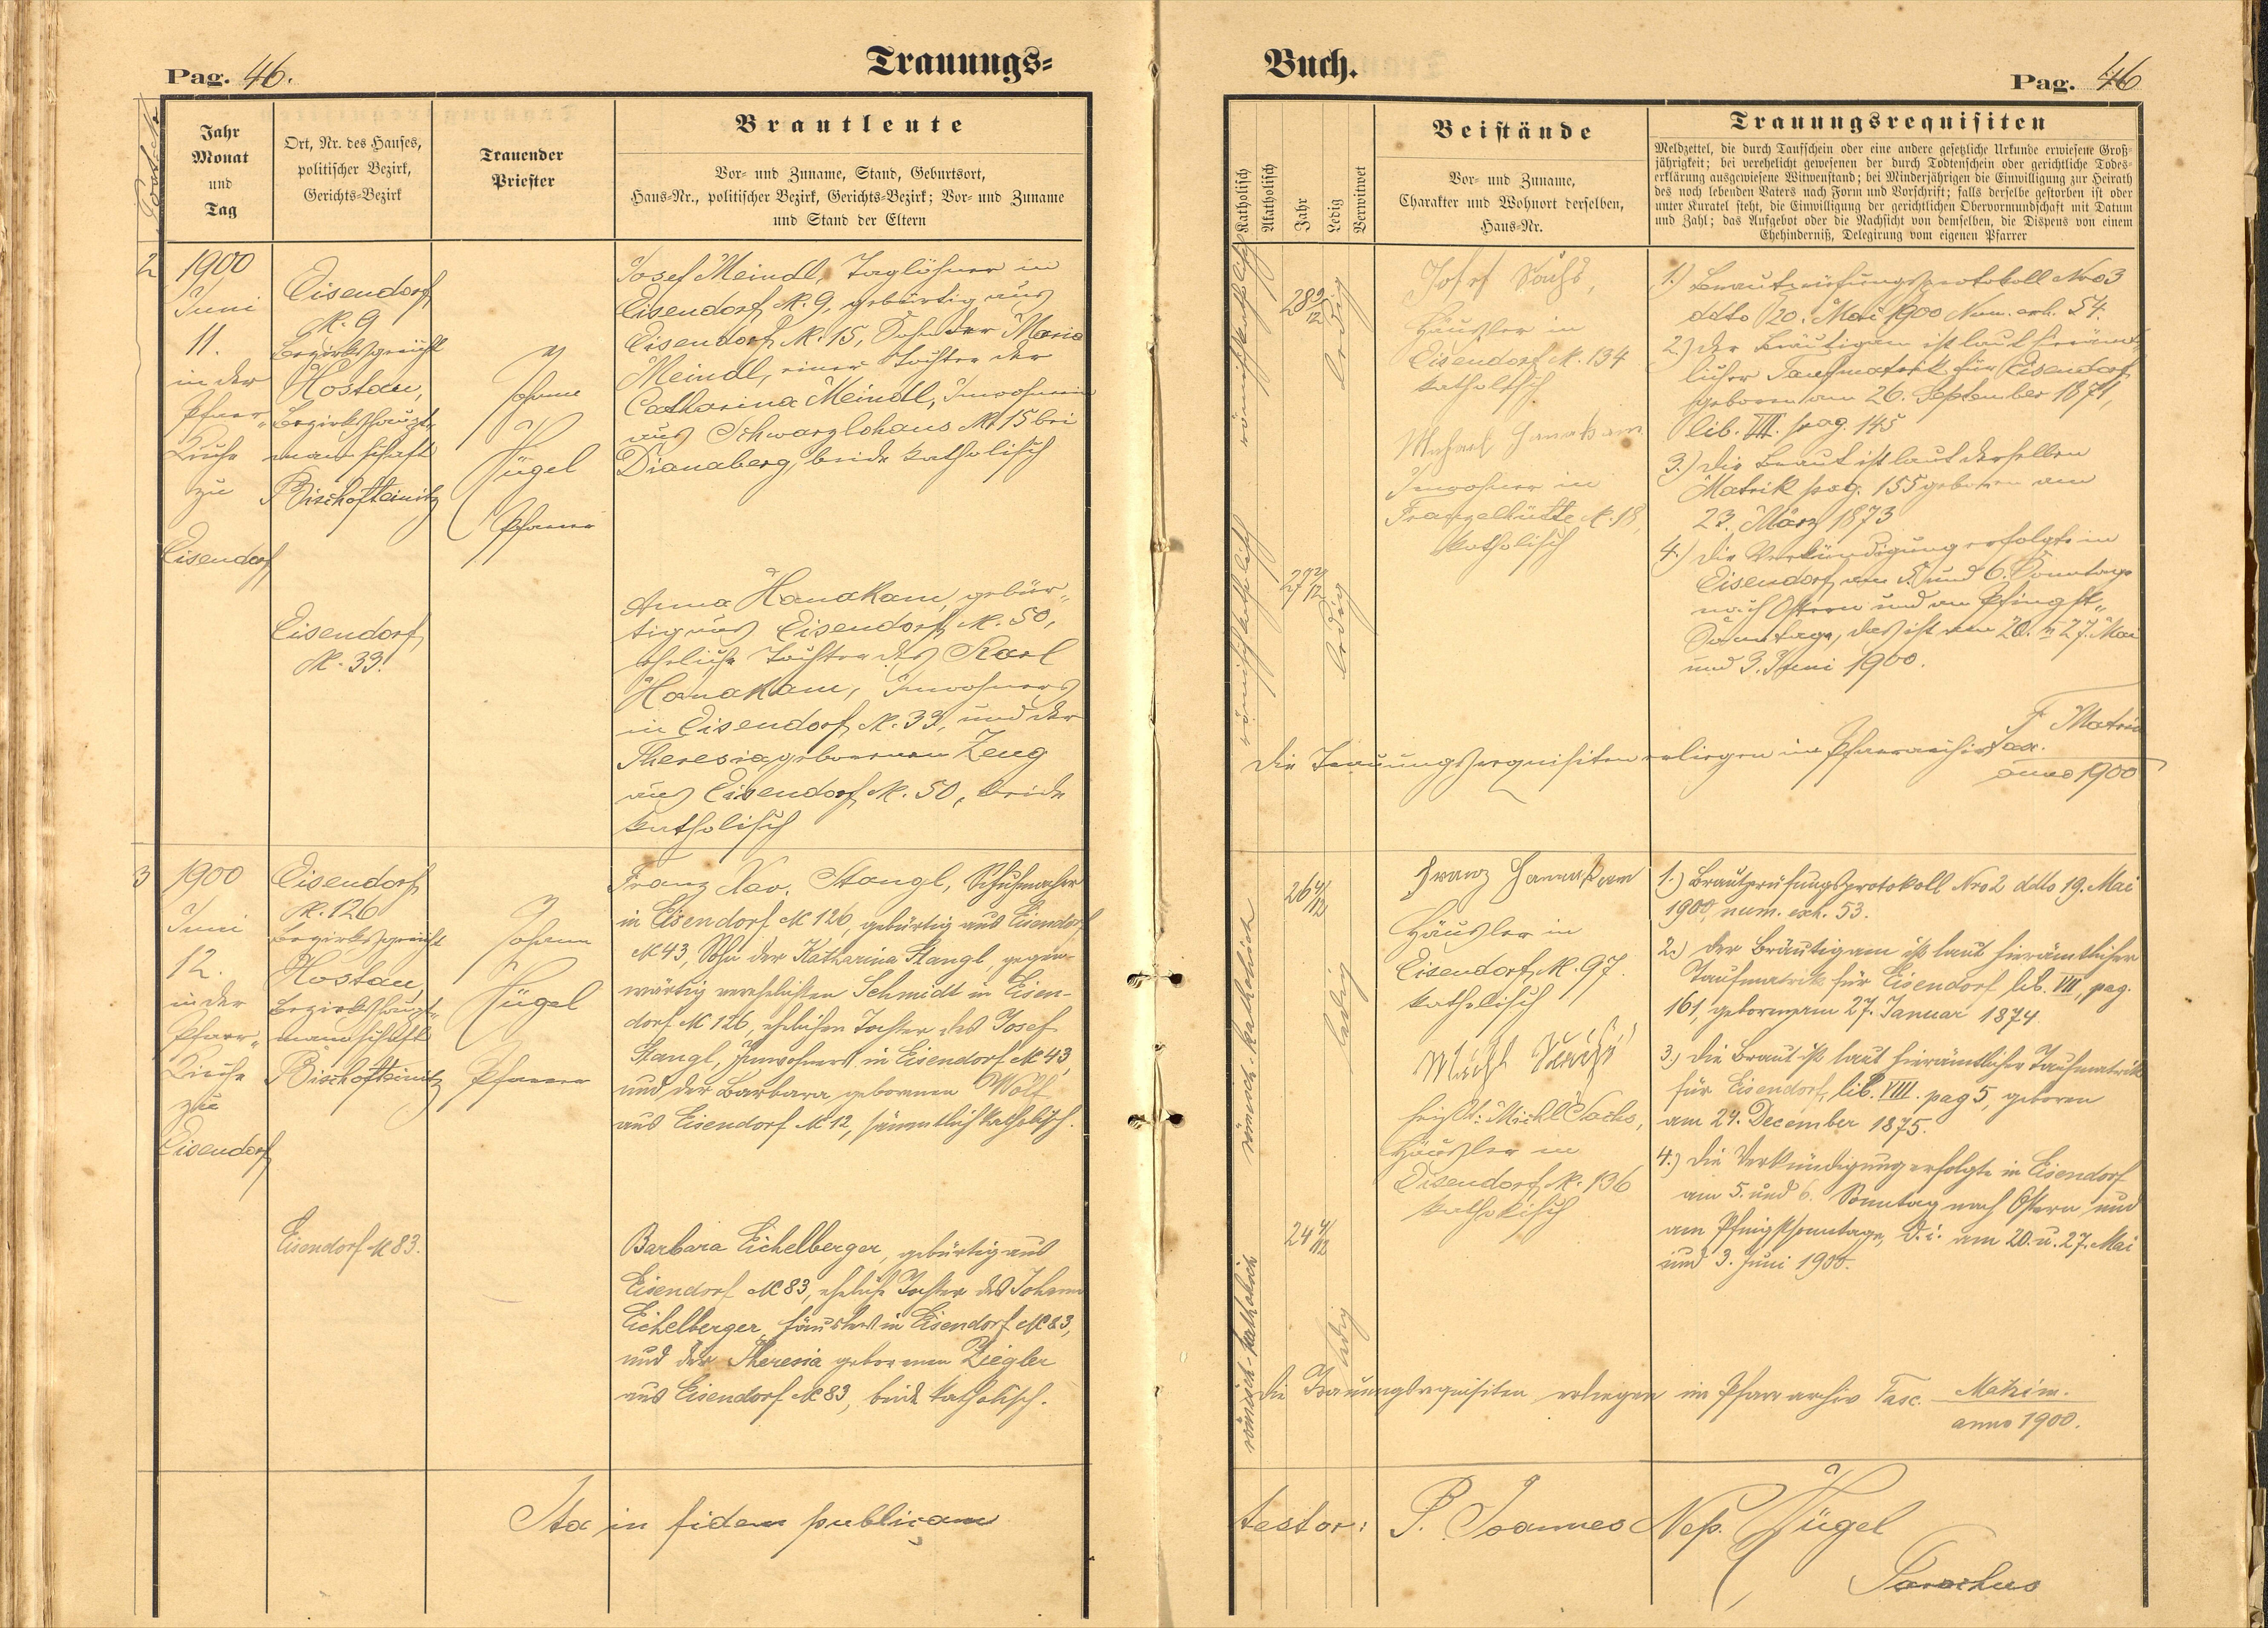 Pag. 46.
Trauungs-
Jahr
Monat
und
Tag
Ort, Nr. des Hauses,
politischer Bezirk,
Gerichts-Bezirk
Trauender
Priester
Brautleute
Vor- und Zuname, Stand, Geburtsort,
Haus-Nr., politischer Bezirk, Gerichts-Bezirk; Vor- und Zuname
und Stand der Eltern
2
1900
Juni
11.
in der
Pfarr-
Kirche
zu
Eisendorf
Eisendorf
N. 9
Bezirksgericht
Hostau,
Bezirkshaupt-
mannschaft
Bischofteinitz
Johann
Hügel
Pfarrer
Josef Meindl, Taglöhner in
Eisendorf N. 9, gebürtig aus
Eisendorf N. 15, Sohn der Maria
Meindl, einer Tochter der
Catharina Meindl, Inwohnerin
aus Schwarzlohaus N. 15 bei
Dianaberg, beide katholisch
Eisendorf
N. 33.
Anna Hanakam, gebür-
tig aus Eisendorf N. 50,
eheliche Tochter des Karl
Hanakam, Inwohners
in Eisendorf N. 33, und der
Theresia, geborenen Zeug
aus Eisendorf N. 50, beide
katholisch
3
1900
Juni
12.
in der
Pfarr-
Kirche
zu
Eisendorf
Eisendorf
N. 126
Bezirksgericht
Hostau,
Bezirkshaupt-
mannschaft
Bischofteinitz
Johann
Hügel
Pfarrer
Franz Xav. Stangl, Schuhmacher
in Eisendorf N 126, gebürtig aus Eisendorf
N 43, Sohn der Katharina Stangl, gegen-
wärtig verehelichten Schmidt in Eisen-
dorf N 126, ehelichen Tochter des Josef
Stangl, Inwohners in Eisendorf N 43,
und der Barbara geborenen Wolf
aus Eisendorf N 12, sämmtlich katholisch.
Eisendorf N 83.
Barbara Eichelberger, gebürtig aus
Eisendorf N 83, eheliche Tochter des Johann
Eichelberger, Häuslers in Eisendorf N 83,
und der Theresia geborenen Ziegler
aus Eisendorf N 83, beide katholisch.
Ita in fidem publicam
Buch.
Pag. 46
Katholisch
Akatholisch
Jahr
Ledig
Verwitwet
Beistände
Vor- und Zuname,
Charakter und Wohnort derselben,
Haus-Nr.
Trauungsrequisiten
Meldzettel, die durch Taufschein oder eine andere gesetzliche Urkunde erwiesene Groß-
jährigkeit; bei verehelicht gewesenen der durch Todtenschein oder gerichtliche Todes-
erklärung ausgewiesene Witwenstand; bei Minderjährigen die Einwilligung zur Heirath
des noch lebenden Vaters nach Form und Vorschrift; falls derselbe gestorben ist oder
unter Kuratel steht, die Einwilligung der gerichtlichen Obervormundschaft mit Datum
und Zahl; das Aufgebot oder die Nachsicht von demselben, die Dispens von einem
Ehehinderniß, Delegirung vom eigenen Pfarrer
römisch katholisch
ledig
Josef Sachs,
Häusler in
Eisendorf N. 134
katholisch
Michael Hanakam
Inwohner in
Franzelhütte N. 18,
katholisch
1.) Brautprüfungsprotokoll Nro 3
ddto 20. Mai 1900 Num. exh. 54.
2.) Der Bräutigam ist laut hierämt-
licher Taufmatrik für Eisendorf
geboren am 26. September 1871,
lib. VII. pag. 145
3.) Die Braut ist laut derselben
Matrik pag. 155 geboren am
23. März 1873
4.) Die Verkündigung erfolgte in
Eisendorf am 5. und 6. Sonntage
nach Ostern und am Pfingst-
Sonntage, das ist am 20. u 27. Mai
und 3. Juni 1900.
römisch katholisch
27 2/12
ledig
Die Trauungsrequisiten erliegen im Pfarrarchiv
anno 1900
römisch-katholisch
26 4/12
ledig
Franz Hanakam
Häusler in
Eisendorf N. 97.
katholisch
Michl Sachs
heißt: Michl Sachs,
Häusler in
Eisendorf N. 136
katholisch
1.) Brautprüfungsprotokoll Nro 2 ddto 19. Mai
1900, num. exh. 53.
2.) Der Bräutigam ist laut hierämtlicher
Taufmatrik für Eisendorf lib. VII, pag.
161, geboren am 27. Januar 1874.
3.) Die Braut ist laut hierämtlicher Taufmatrik
für Eisendorf, lib. VIII. pag 5, geboren
am 24. December 1875.
4.) Die Verkündigung erfolgte in Eisendorf
am 5. und 6. Sonntag nach Ostern und
am Pfingstsonntage, d. i. am 20. u. 27. Mai
und 3. Juni 1900.
römisch-katholisch
24 4/12
ledig
Die Trauungsrequisiten erliegen im Pfarrarchiv Fasc. Matrim.
anno 1900.
testor: P. Joannes Nep. Hügel
Parochus